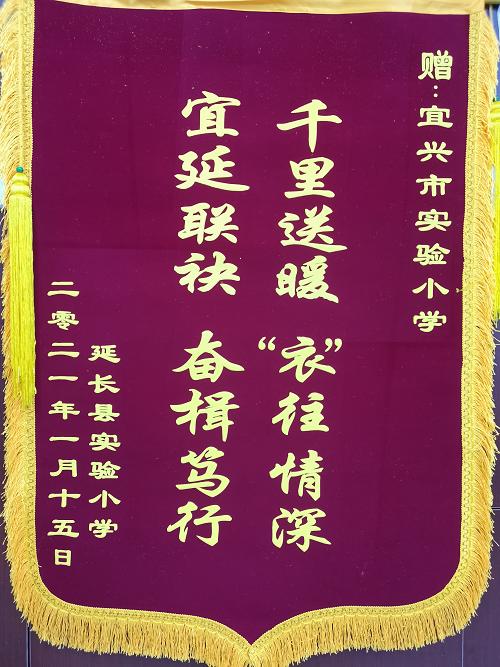 赠：宜兴市实验小学
千里送暖 “衣”往情深
宜延联袂 奋楫笃行
延长县实验小学
二零二一年一月十五日